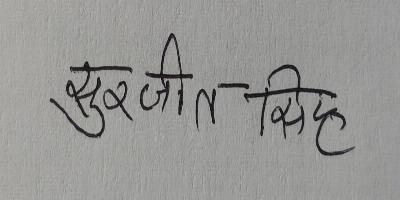 सुरजीत सिंह